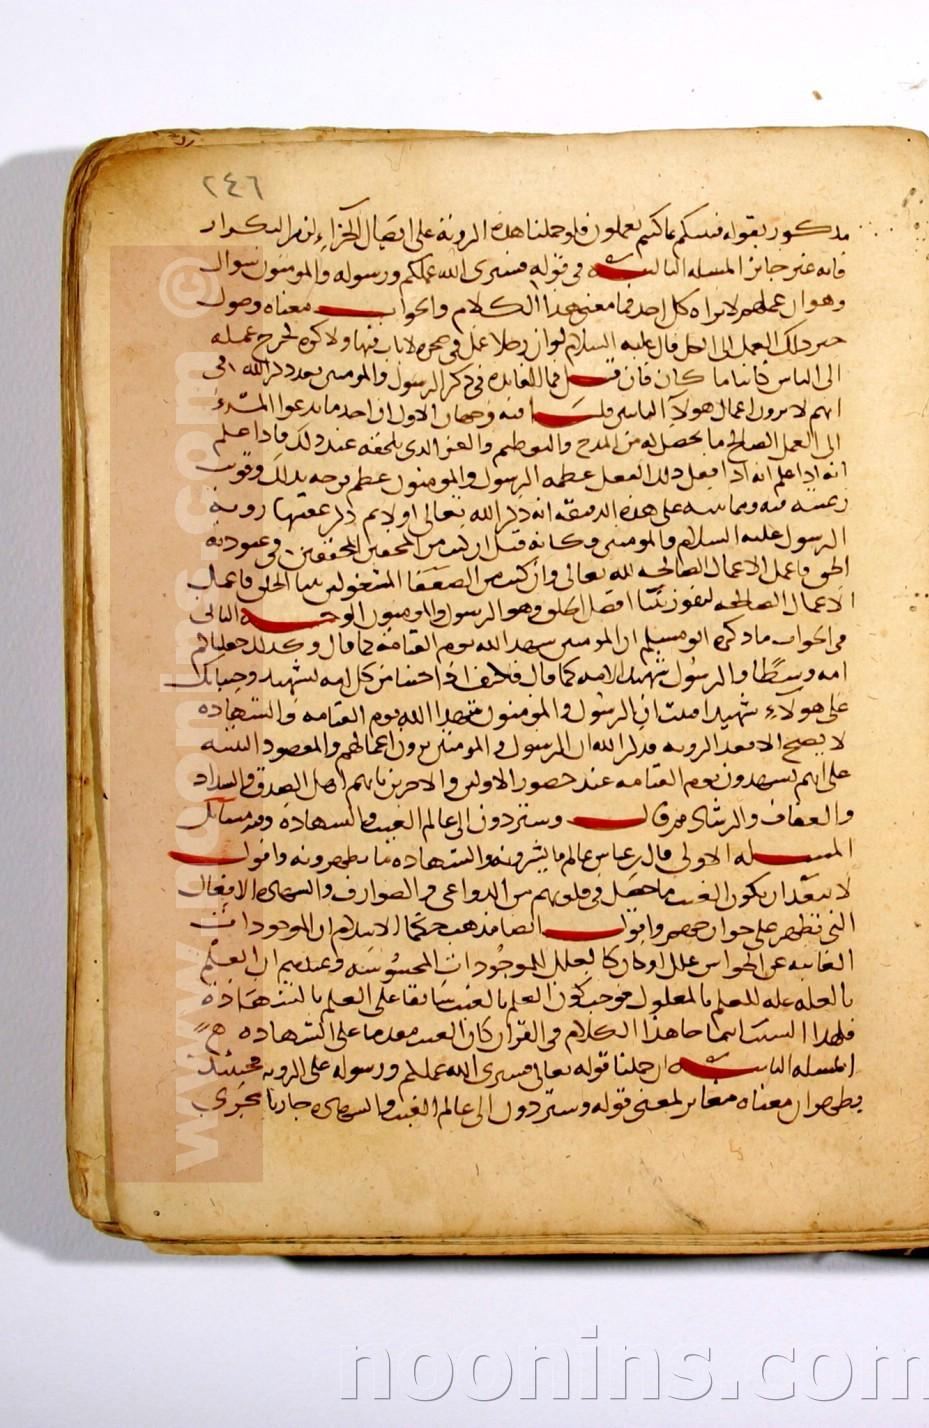 ٢٤٦
مذكور بقوله فينبئكم بما كنتم تعملون فلو حملنا هذه الروية على ايصال الجزاء لزم التكرار
وانه غير جايز المسله الثالثه في قوله فسيرى الله عملكم ورسوله والمومنون سوال
وهو ان عملهم لا يراه كل احد فما معنى هذا الكلام والجواب معناه وصول
خبر ذلك العمل الى الكل قال عليه السلام لو ان رجلا عمل في صخره لا باب فيها ولا كوه لخرج عمله
الى الناس كاينا ما كان فان قيل فما الفايده في ذكر الرسول والمومنين بعد ذكر الله في
انهم لا يرون اعمال هولآ التايبين قلنا فيه وجهان الاول ان اجد ما يدعوا المرء
الى العمل الصالح ما يحصل له من المدح والتعظيم والعز الذي يلحقه عند ذلك فاذا علم
انه اذا علم انه اذا فعل ذلك الفعل عظمه الرسول والمومنون عظم فرحه بذلك وقويت
رغبته فيه ومما ينبه على هذه الدقيقه انه ذكر الله تعالى اولا ثم ذكر عقيبها روية
الرسول عليه السلام والمومنين وكانه قيل ان كنت من المحقين المحققين في عبودية
الحق فاعمل الاعمال الصالحه لله تعالى وان كنت من الضعفا المشغولين بثنا الخلق فاعمل
الاعمال الصالحه لتفوز بثنا افضل الخلق وهو الرسول والمومنون الوجه الثاني
في الجواب ما ذكره ابو مسلم ان المومنين شهدا الله يوم القيامة كما قال وكذلك جعلناكم
امه وسطًا والرسول شهيد الامه كما قال فكيف اذا جئنا من كل امه بشهيد وجينا بك
على هولآء شهيدا فثبت ان الرسول والمومنون شهدا الله يوم القيامه والشهادة
لا يصح الا بعد الرويه فذكر الله ان الرسول والمومنين يرون اعمالهم والمقصود التنبيه
على انهم يشهدون يوم القيامه عند حضور الاولين والاخرين بانهم اهل الصدق والسداد
والعفاف والرشاد ثم قال وستردون الى عالم الغيب والشهاده وفيه مسايل
المسله الاولى قال ابن عباس عالم ما يسرونه والشهاده ما يظهرونه واقول
لا يبعد ان يكون الغيب ما حصل في قلوبهم من الدواعي والصوارف والشهاده الافعال
التي تظهر على جوارحهم واقول ايضا مذهب حكما الاسلام ان الموجودات
الغايبه عن الحواس علل او كان كالعلل للموجودات المحسوسه وعندهم ان العلم
بالعله عله للعلم بالمعلول فوجب كون العلم بالغيب سابقا على العلم بالشهادة
فلهذا السبب اينما جا هذا الكلام في القران كان الغيب مقدما على الشهاده
المسله الثانيه ان حملنا قوله تعالى فسيرى الله عملكم ورسوله على الرويه فحينئذ
يظهر ان معناه مغاير لمعنى قوله وستردون الى عالم الغيب والشهاده جاريا مجرى
www.noonins.com ©
noonins.com